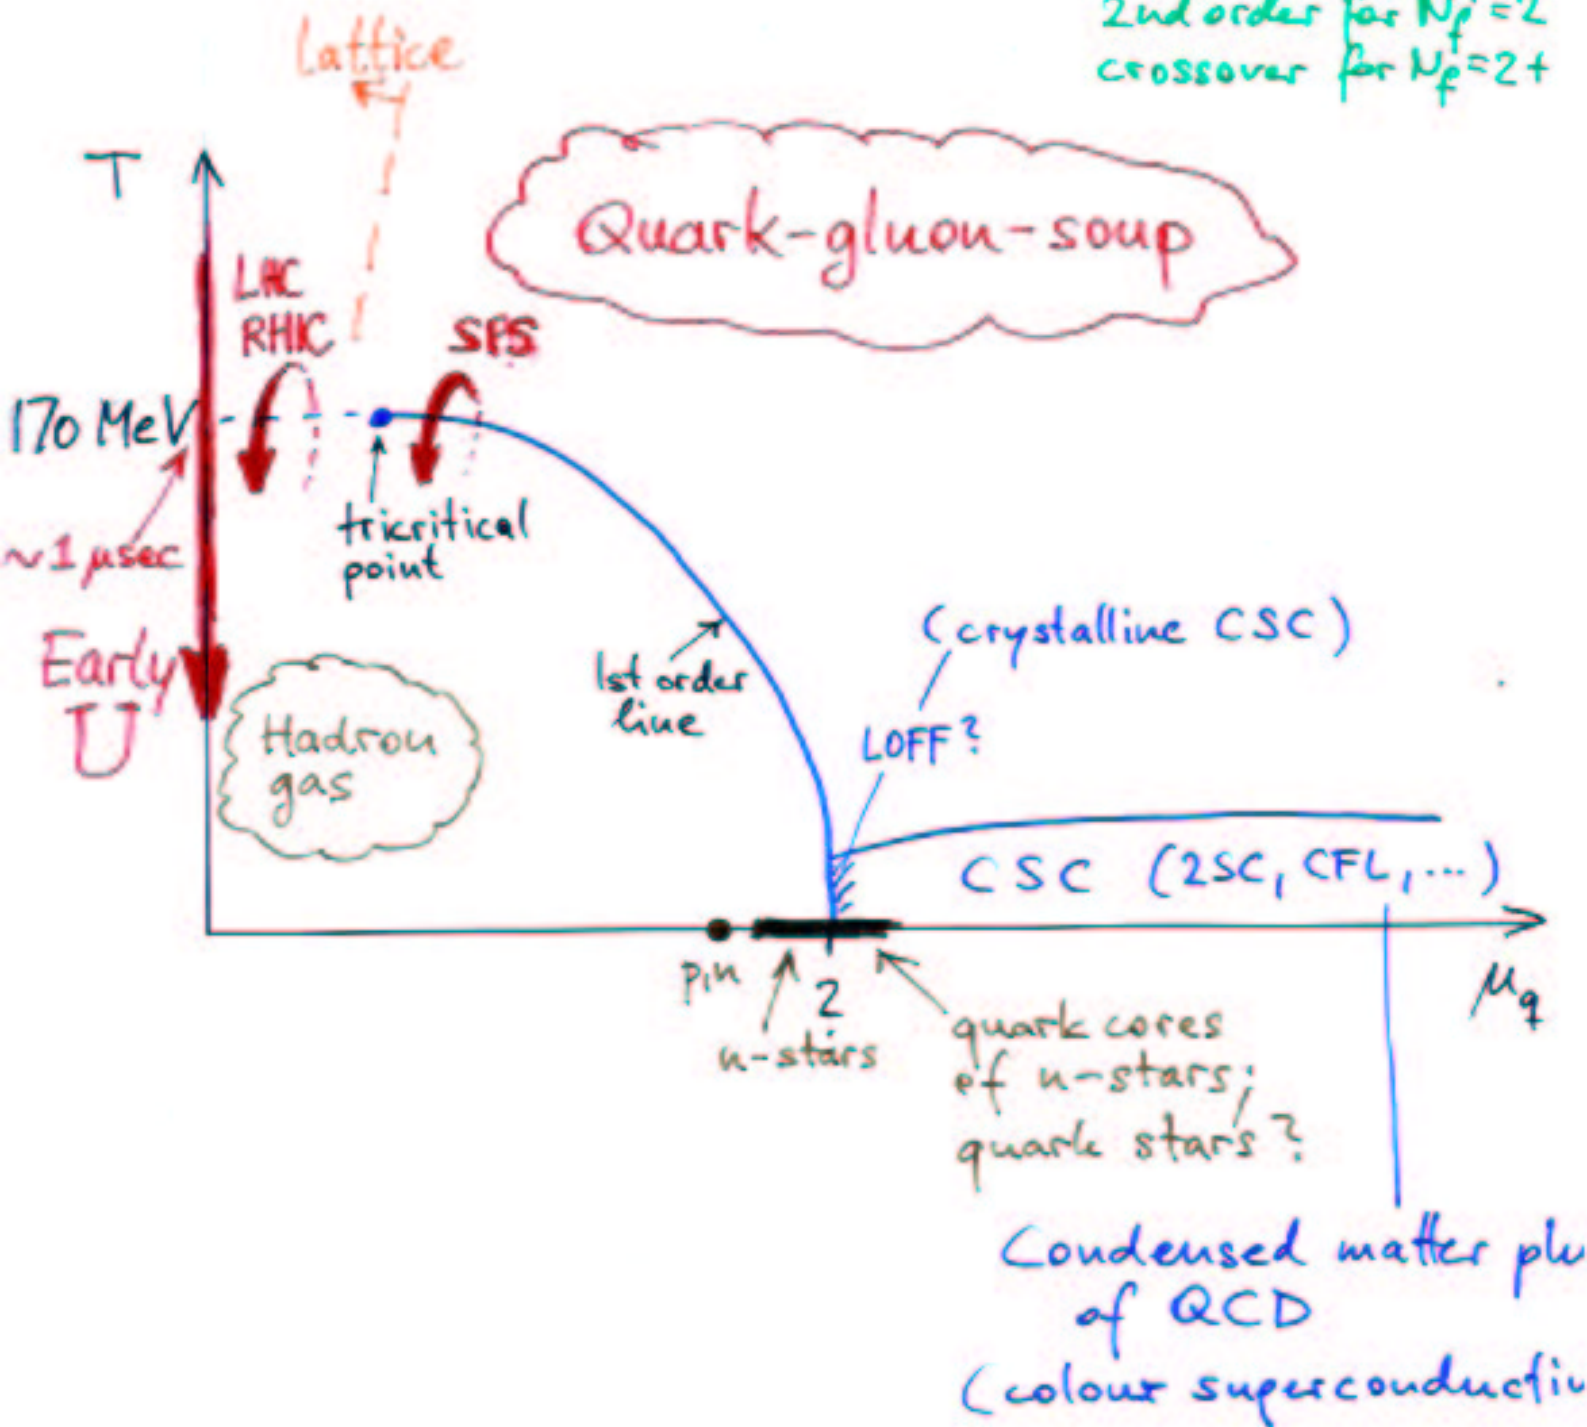 2nd order for Nf=2
crossover for Nf=2+
Lattice
T
Quark-gluon-soup
LHC
RHIC
SPS
170 MeV
tricritical
point
~1 μsec
Early
U
1st order
line
(crystalline CSC)
LOFF?
Hadron
gas
CSC (2SC, CFL,...)
p,n
2
n-stars
μq
quark cores
of n-stars;
quark stars?
Condensed matter
of QCD
(colour